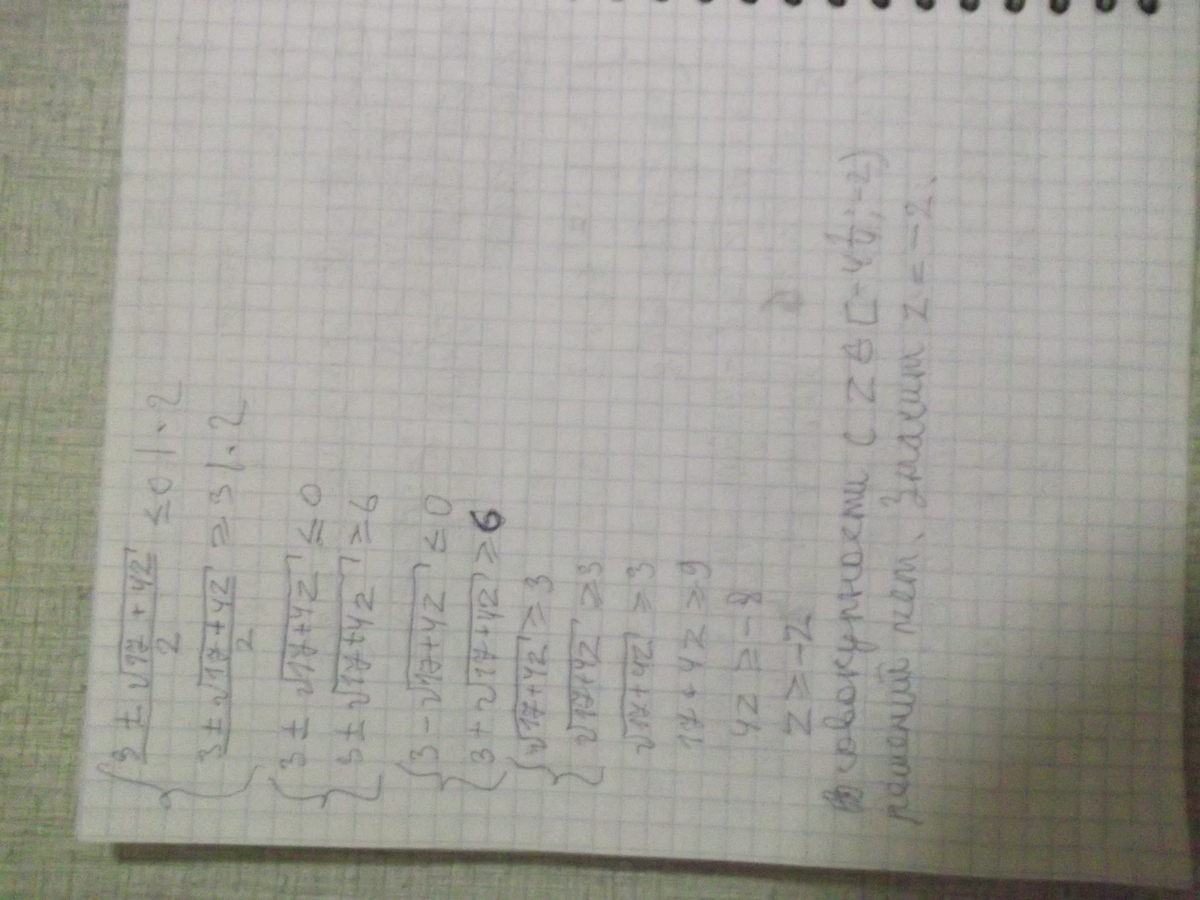 { (3 ± √(17+4z))/2 ≤ 0 | · 2
(3 ± √(17+4z))/2 ≥ 3 | · 2
{ 3 ± √(17+4z) ≤ 0
3 ± √(17+4z) ≥ 6
{ 3 - √(17+4z) ≤ 0
3 + √(17+4z) ≥ 6
{ √(17+4z) ≥ 3
√(17+4z) ≥ 3
√(17+4z) ≥ 3
17 + 4z ≥ 9
4z ≥ -8
z ≥ -2
В совокупности с z ∈ [-4¼; -2)
решений нет. Значит z = -2.